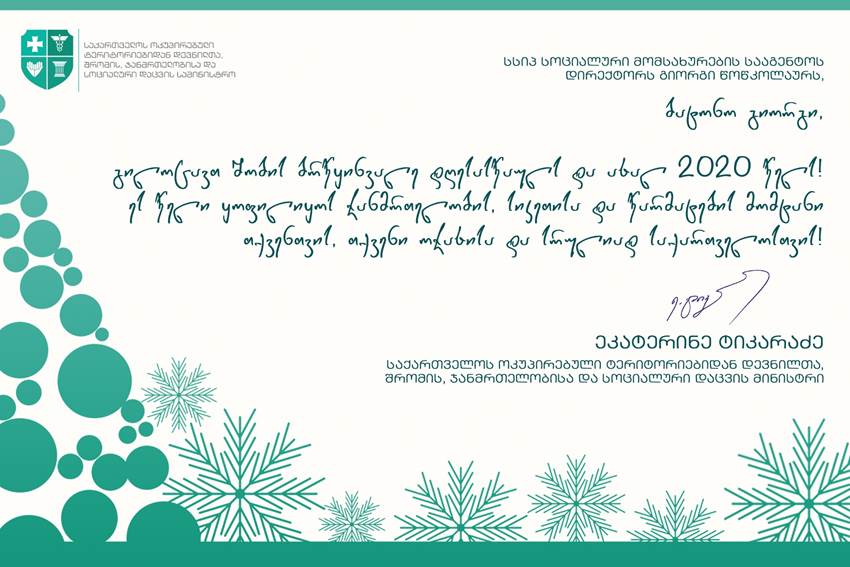 საქართველოს ოკუპირებული
ტერიტორიებიდან დევნილთა,
შრომის, ჯანმრთელობისა და
სოციალური დაცვის სამინისტრო
სსიპ სოციალური მომსახურების სააგენტოს
დირექტორს გიორგი წოწკოლაურს,
ბატონო გიორგი,
გილოცავთ შობის ბრწყინვალე დღესასწაულს და ახალ 2020 წელს!
ეს წელი ყოფილიყოს ჯანმრთელობის, სიკეთისა და წარმატების მომტანი
თქვენთვის, თქვენი ოჯახისა და სრულიად საქართველოსთვის!
ეკატერინე ტიკარაძე
საქართველოს ოკუპირებული ტერიტორიებიდან დევნილთა,
შრომის, ჯანმრთელობისა და სოციალური დაცვის მინისტრი